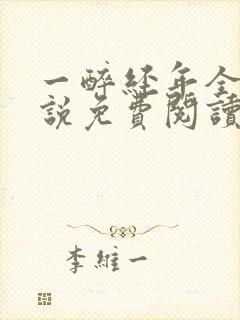 一醉经年全
説免費閱讀
李維一